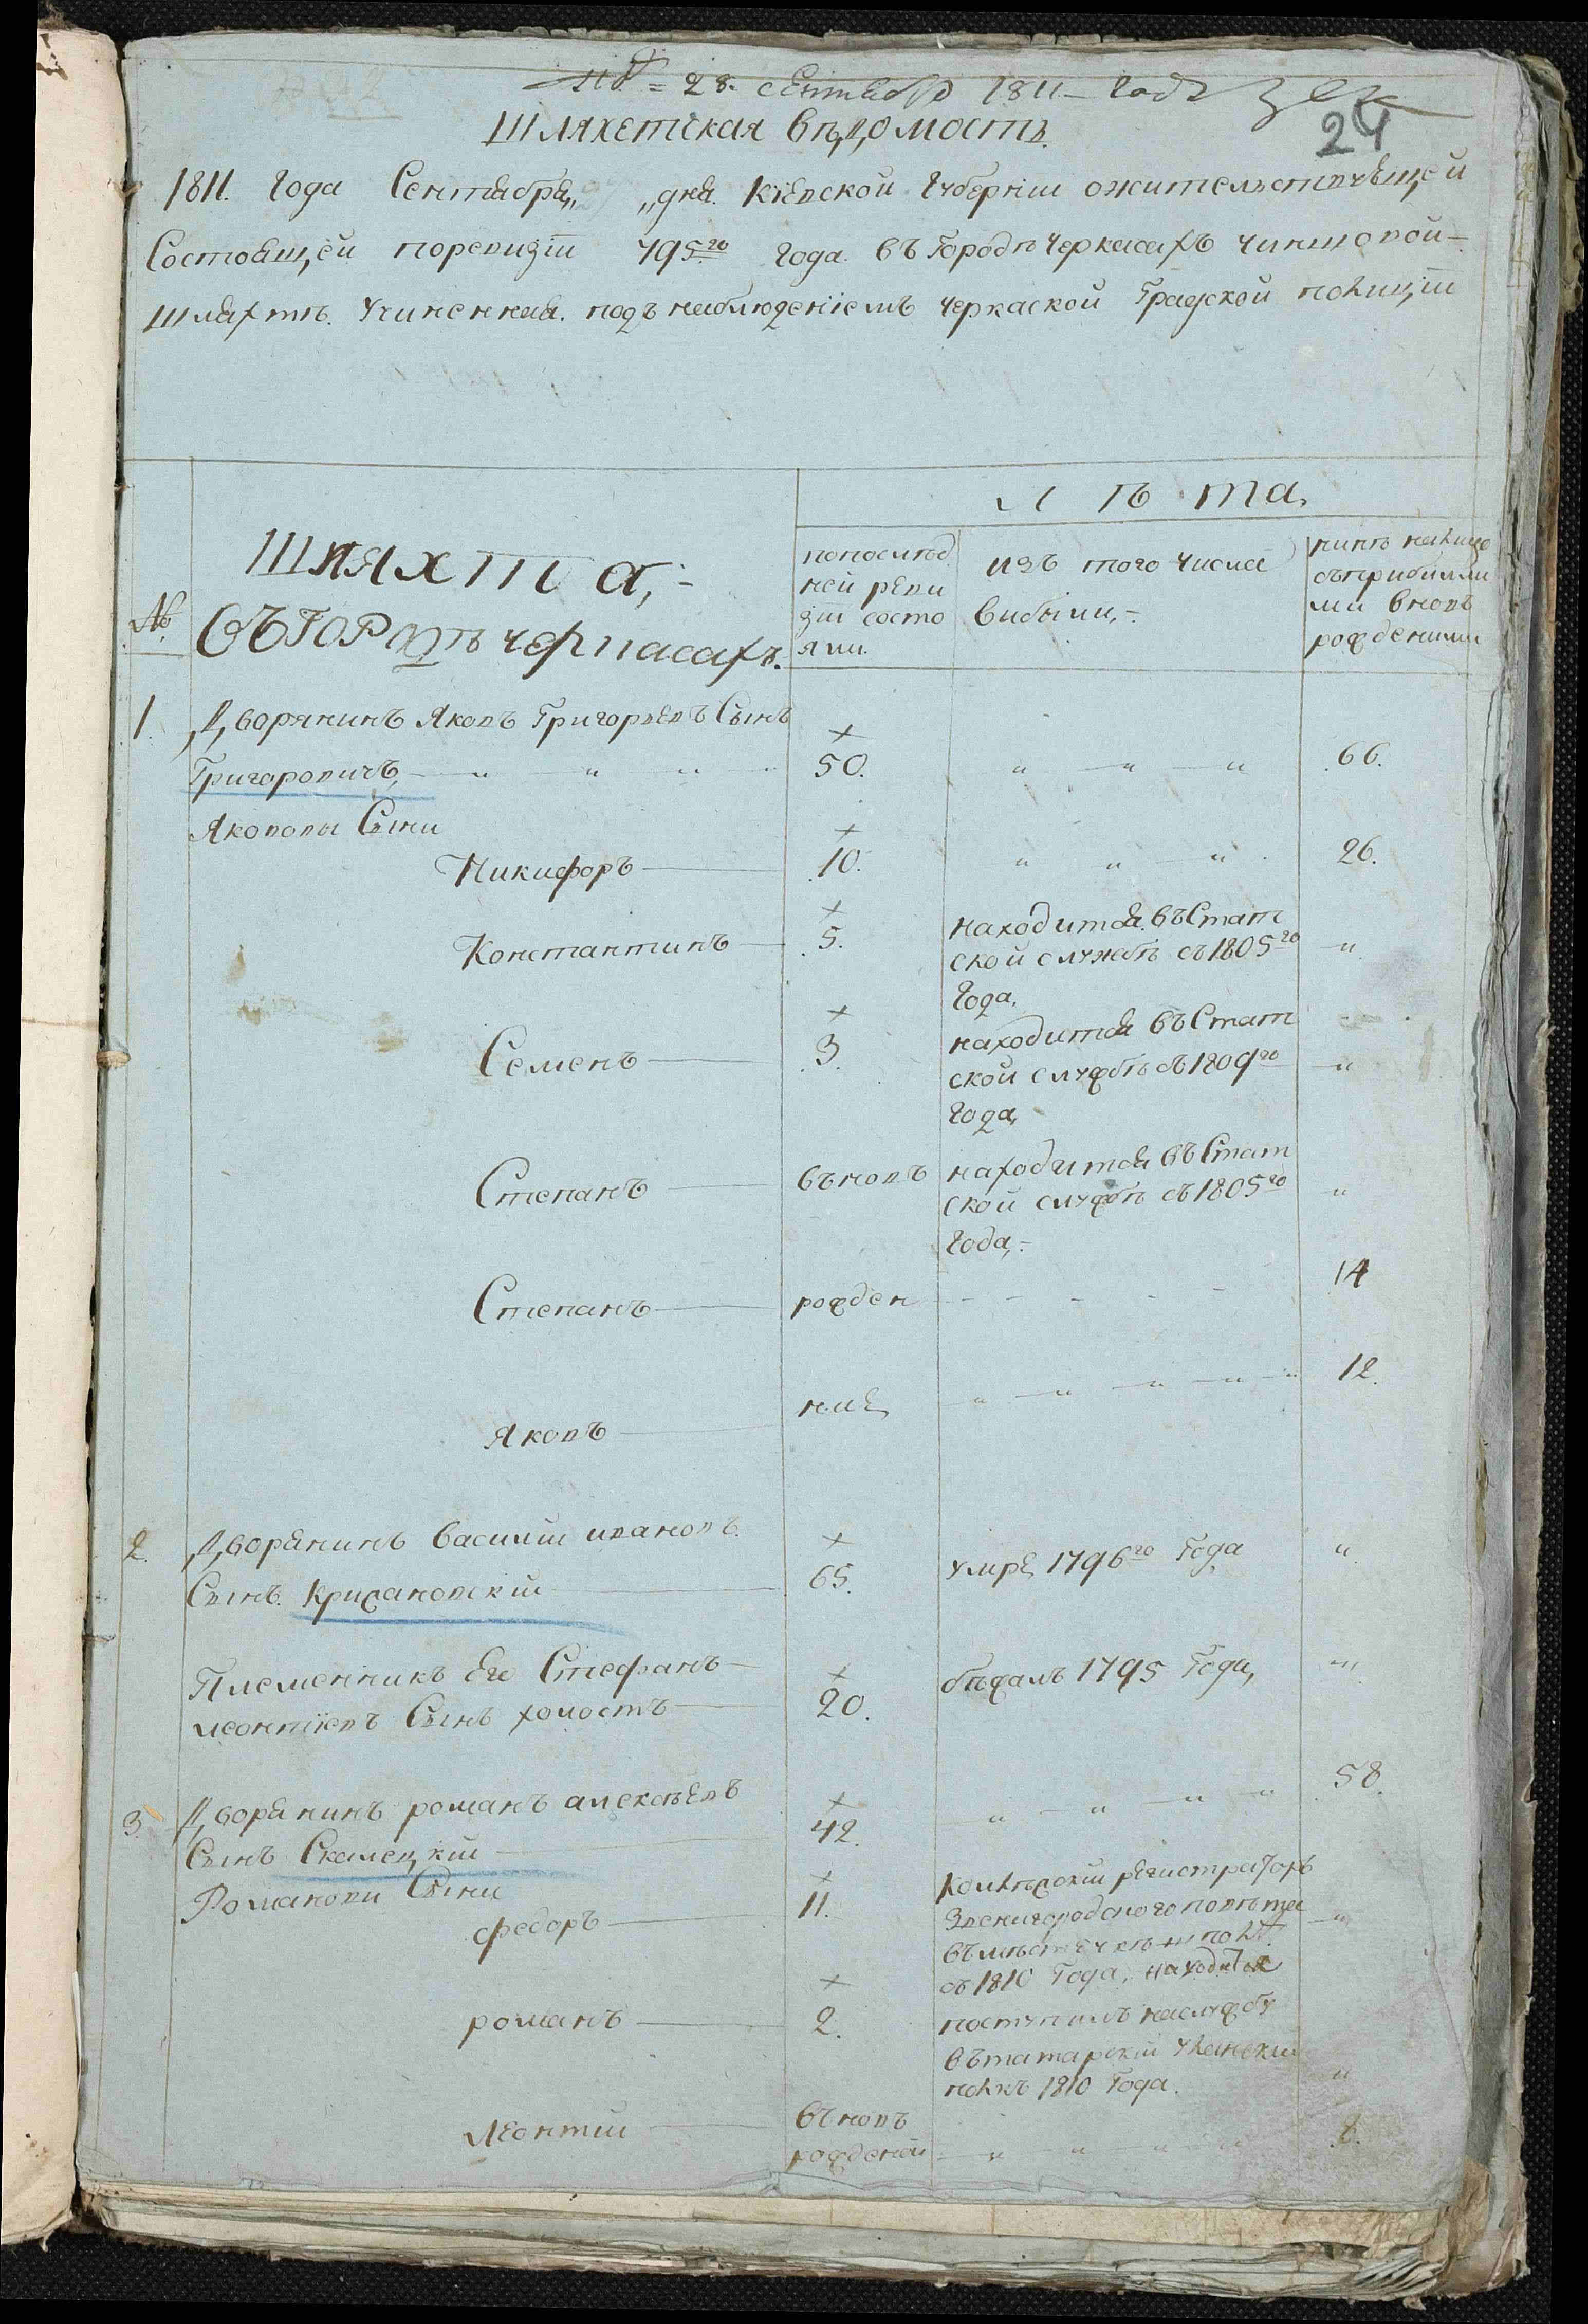 28. Сентября 1811 года
24
Шляхетская вѣдомость.
1811. Года Сентября „ „ дня. Кіевской Губерніи ожительствующей
Состоящей поревизіи 795го года. въ Городѣ Черкасахъ чиншовой
Шляхтѣ. Учиненная. подъ наблюденіемъ Черкаской Градской полиціи
Лѣта,
№
Шляхта,
въ Городѣ Черкасахъ.
попослѣд
ней реви
зіи состо
яли.
изъ того числа
выбыли,
нинѣ налицо
съприбилы
ми вновь
рожденими
1. Дворянинъ Яковъ Григорьевъ Сынъ
Григоровичъ, 50. 66.
Якововы Сыни
Никифоръ 10. 26.
Константинъ 5. находится въ Стат
ской службѣ съ 1805го
Года.
Семенъ 3. находится въ Стат
ской службѣ съ 1809го
Года,
Степанъ въновь находится въ Стат
ской службѣ съ 1805го
Года,
Степанъ рожден 14
Яковъ ние 12.
2. Дворянинъ Василій ивановъ
Сынъ. Крижановскій 65. умре 1796го Года
Племенникъ Его Стефанъ
леонтіевъ Сынъ холостъ 20. бѣжалъ 1795 Года,
3. Дворянинъ романъ алексѣевъ
Сынъ Скалецкій 42. 58.
Романови Сыни
федоръ 11. Колѣжскій регистраторъ
Звенигородского повѣта
въмѣстечкѣ
съ 1810 Года, находится
романъ 2. поступилъ наслужбу
вътатарскій уланскій
полкъ 1810 Года.
Леонтій въновь
рожденой